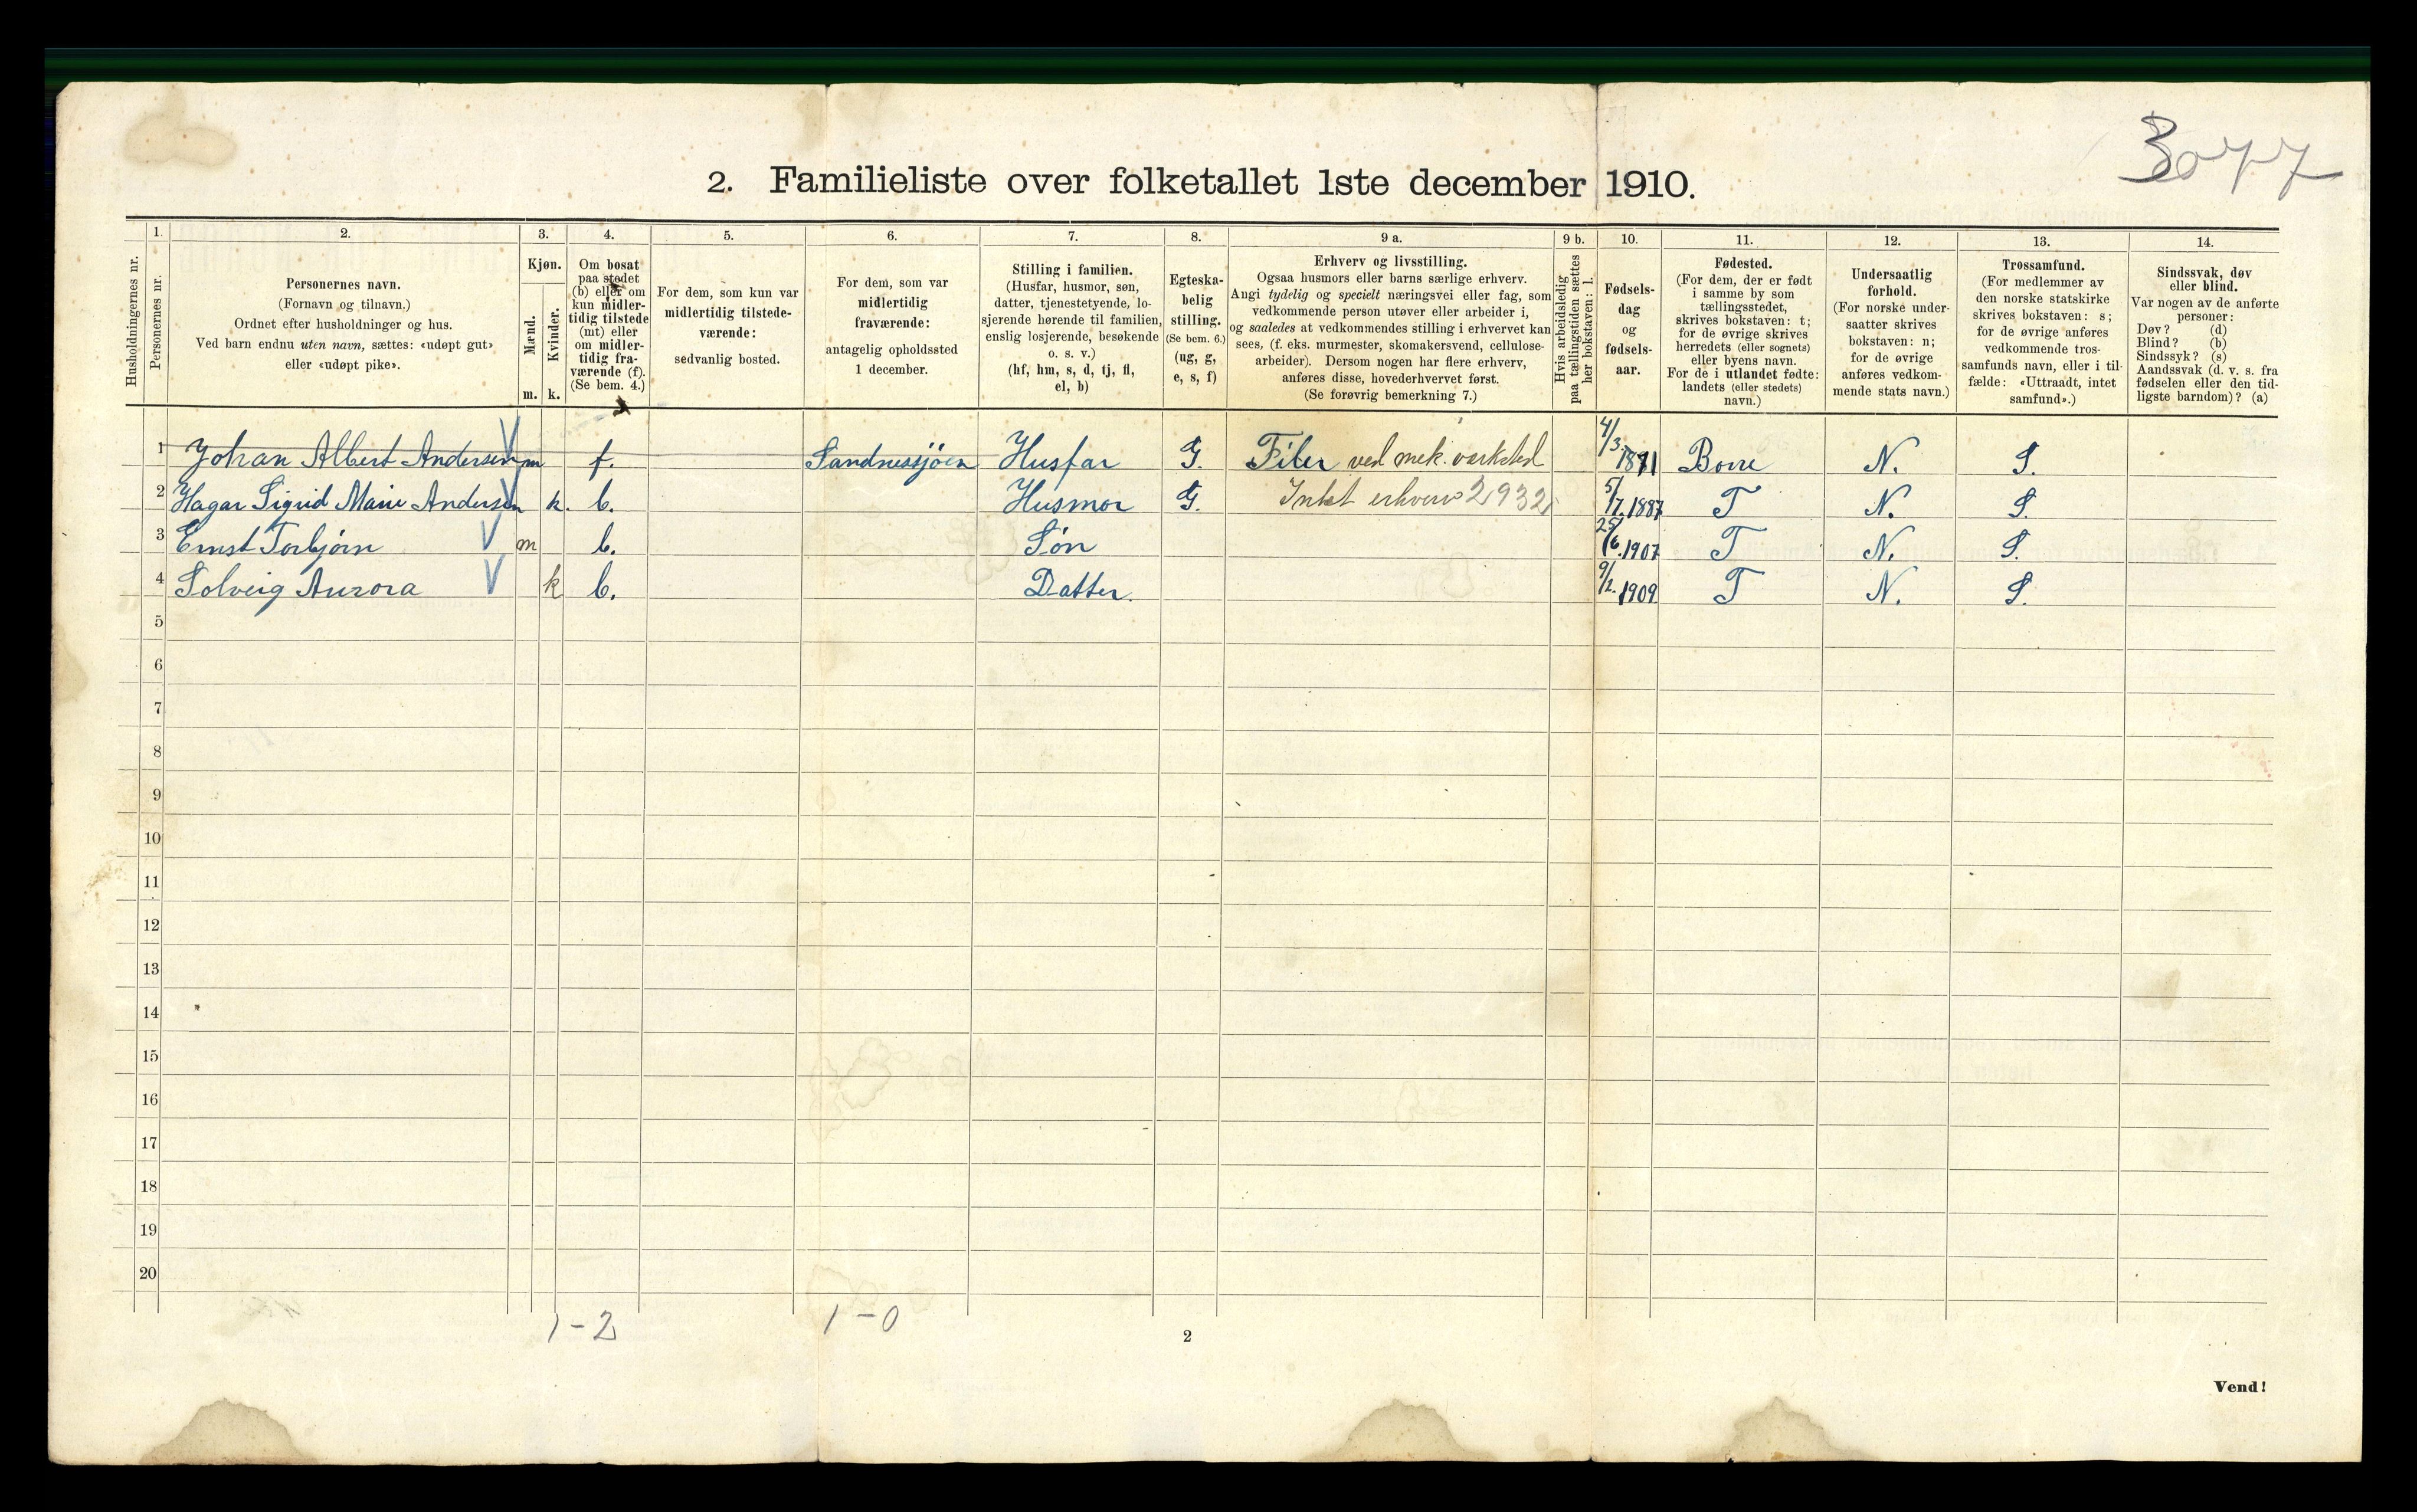 3077
2. Familieliste over folketallet 1ste december 1910.
Husholdningernes nr.
1.
Personernes nr.
2.
Personernes navn.
(Fornavn og tilnavn.)
Ordnet efter husholdninger og hus.
Ved barn endnu uten navn, sættes: «udøpt gut»
eller «udøpt pike».
3.
Kjøn.
Mænd.
Kvinder.
m. k.
4.
Om bosat
paa stedet
(b) eller om
kun midler-
tidig tilstede
(mt) eller
om midler-
tidig fra-
værende (f).
(Se bem. 4.)
5.
For dem, som kun var
midlertidig tilstede-
værende:
sedvanlig bosted.
6.
For dem, som var
midlertidig
fraværende:
antagelig opholdssted
1 december.
7.
Stilling i familien.
(Husfar, husmor, søn,
datter, tjenestetyende, lo-
sjerende hørende til familien,
enslig losjerende, besøkende
o. s. v.)
(hf, hm, s, d, tj, fl,
el, b)
8.
Egteska-
belig
stilling.
(Se bem. 6.)
(ug, g,
e, s, f)
9 a.
Erhverv og livsstilling.
Ogsaa husmors eller barns særlige erhverv.
Angi tydelig og specielt næringsvei eller fag, som
vedkommende person utøver eller arbeider i,
og saaledes at vedkommendes stilling i erhvervet kan
sees, (f. eks. murmester, skomakersvend, cellulose-
arbeider). Dersom nogen har flere erhverv,
anføres disse, hovederhvervet først.
(Se forøvrig bemerkning 7.)
9 b.
Hvis arbeidsledig
paa tællingstiden sættes
her bokstaven: l.
10.
Fødsels-
dag
og
fødsels-
aar.
11.
Fødested.
(For dem, der er født
i samme by som
tællingsstedet,
skrives bokstaven: t;
for de øvrige skrives
herredets (eller sognets)
eller byens navn.
For de i utlandet fødte:
landets (eller stedets)
navn.)
12.
Undersaatlig
forhold.
(For norske under-
saatter skrives
bokstaven: n;
for de øvrige
anføres vedkom-
mende stats navn.)
13.
Trossamfund.
(For medlemmer av
den norske statskirke
skrives bokstaven: s;
for de øvrige anføres
vedkommende tros-
samfunds navn, eller i til-
fælde: «Uttraadt, intet
samfund».)
14.
Sindssvak, døv
eller blind.
Var nogen av de anførte
personer:
Døv? (d)
Blind? (b)
Sindssyk? (s)
Aandssvak (d. v. s. fra
fødselen eller den tid-
ligste barndom)? (a)
1 Johan Albert Andersen m f. Sandnessjöen Husfar G. Filer ved mek. værksted 4/3 1881 Borre N. S.
2 Hagar Sigrid Marie Andersen k. b. Husmor G. Intet erhverv 2932 5/7. 1887 T N. S.
3 Ernst Torbjörn m b. Søn 25/6. 1907 T N. S.
4 Solveig Aurora k b. Datter. 9/2. 1909 T N. S.
5
6
7
8
9
10
11
12
13
14
15
16
17
18
19
20
1-2 1-0
2
Vend!